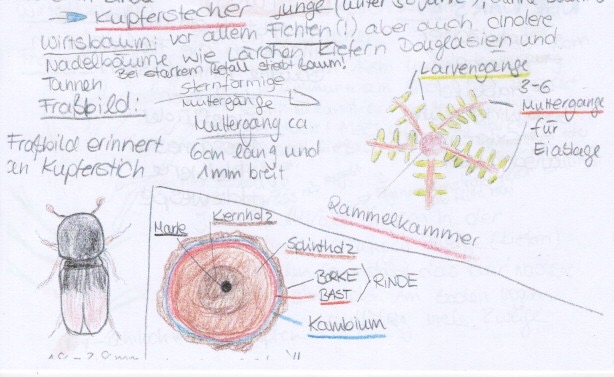 Kupferstecher junge (unter
Wirtsbaum: vor allem Fichten (!) aber auch andere
Nadelbäume wie Lärchen Kiefern Douglasien und
Tannen Bei starkem Befall stirbt Baum!
Fraßbild: sternförmige
Muttergänge
Muttergang ca.
6cm lang und
1mm breit
Fraßbild erinnert
an Kupferstich
Larvengänge
3-6
Muttergänge
für
Eiablage
Rammelkammer
Kernholz
Mark
Splintholz
BORKE
BAST
RINDE
Kambium